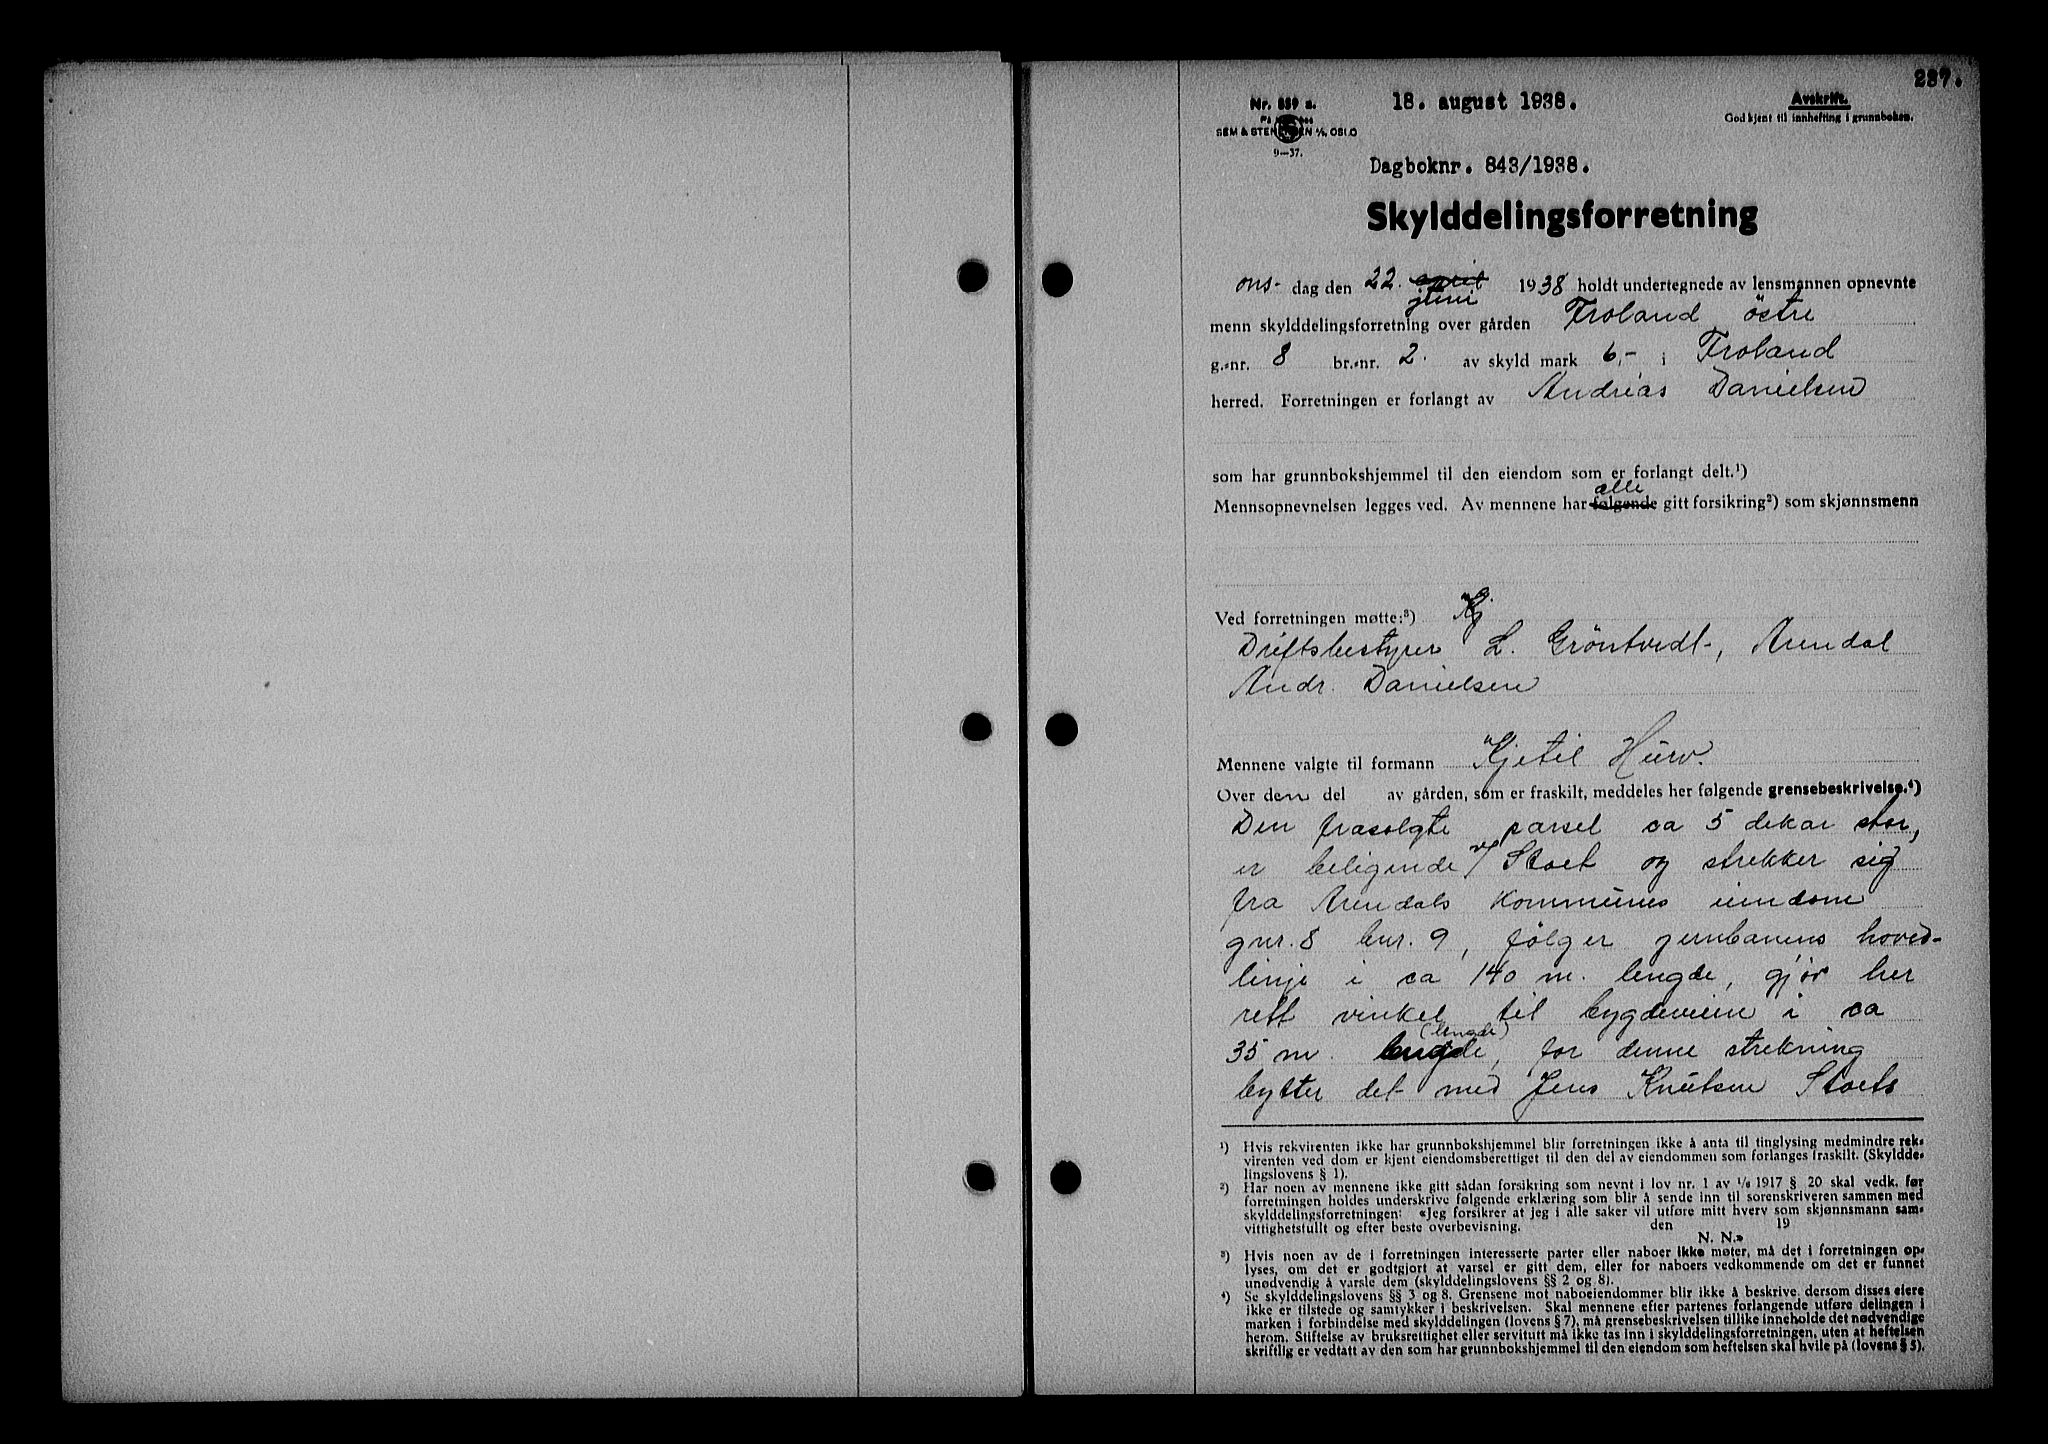 287.
Nr. 859 a.
SEM & STENERSEN A/S, OSLO
9—37.
18. august 1938.
Avskrift.
Godkjent til innhefting i grunnboken.
Dagboknr. 843/1938.
Skylddelingsforretning
ons- dag den 22. april juni 1938 holdt undertegnede av lensmannen opnevnte
menn skylddelingsforretning over gården Froland östre
g.-nr. 8 br.-nr. 2. av skyld mark 6,- i Froland
herred. Forretningen er forlangt av Andreas Danielsen
som har grunnbokshjemmel til den eiendom som er forlangt delt.¹)
alle
Mennsopnevnelsen legges ved. Av mennene har følgende gitt forsikring²) som skjønnsmenn
Ved forretningen møtte:³) Kj
Driftsbestyrer L. Gröntvedt, Arendal
Andr. Danielsen
Mennene valgte til formann Kjetil Hurv.
Over den del av gården, som er fraskilt, meddeles her følgende grensebeskrivelse.⁴)
Den frasolgte parsel ca 5 dekar stor,
er beligende v/ Stoet og strekker sig
fra Arendals kommunes eiendom
gnr. 8 bnr. 9, fölger jernbanens hoved-
linje i ca 140 m. lengde, gjör her
rett vinkel til bygdeveien i ca
(lengde)
35 m. lengde, for denne strekning
bytter det med Jens Knutsen Stoets
¹) Hvis rekvirenten ikke har grunnbokshjemmel blir forretningen ikke å anta til tinglysing medmindre rek-
virenten ved dom er kjent eiendomsberettiget til den del av eiendommen som forlanges fraskilt. (Skyldde-
lingslovens § 1).
²) Har noen av mennene ikke gitt sådan forsikring som nevnt i lov nr. 1 av 1/6 1917 § 20 skal vedk. før
forretningen holdes underskrive følgende erklæring som blir å sende inn til sorenskriveren sammen med
skylddelingsforretningen: «Jeg forsikrer at jeg i alle saker vil utføre mitt hverv som skjønnsmann sam-
vittighetsfullt og efter beste overbevisning. den 19
N. N.»
³) Hvis noen av de i forretningen interesserte parter eller naboer ikke møter, må det i forretningen op-
lyses, om det er godtgjort at varsel er gitt dem, eller for naboers vedkommende om det er funnet
unødvendig å varsle dem (skylddelingslovens §§ 2 og 8).
⁴) Se skylddelingslovens §§ 3 og 8. Grensene mot naboeiendommer blir ikke å beskrive, dersom disses eiere
ikke er tilstede og samtykker i beskrivelsen. Skal mennene efter partenes forlangende utføre delingen i
marken i forbindelse med skylddelingen (lovens § 7), må grensebeskrivelsen tillike inneholde det nødvendige
herom. Stiftelse av bruksrettighet eller servitutt må ikke tas inn i skylddelingsforretningen, uten at heftelsen
skriftlig er vedtatt av den som har grunnbokshjemmel til den eiendom som heftelsen skal hvile på (lovens § 5).